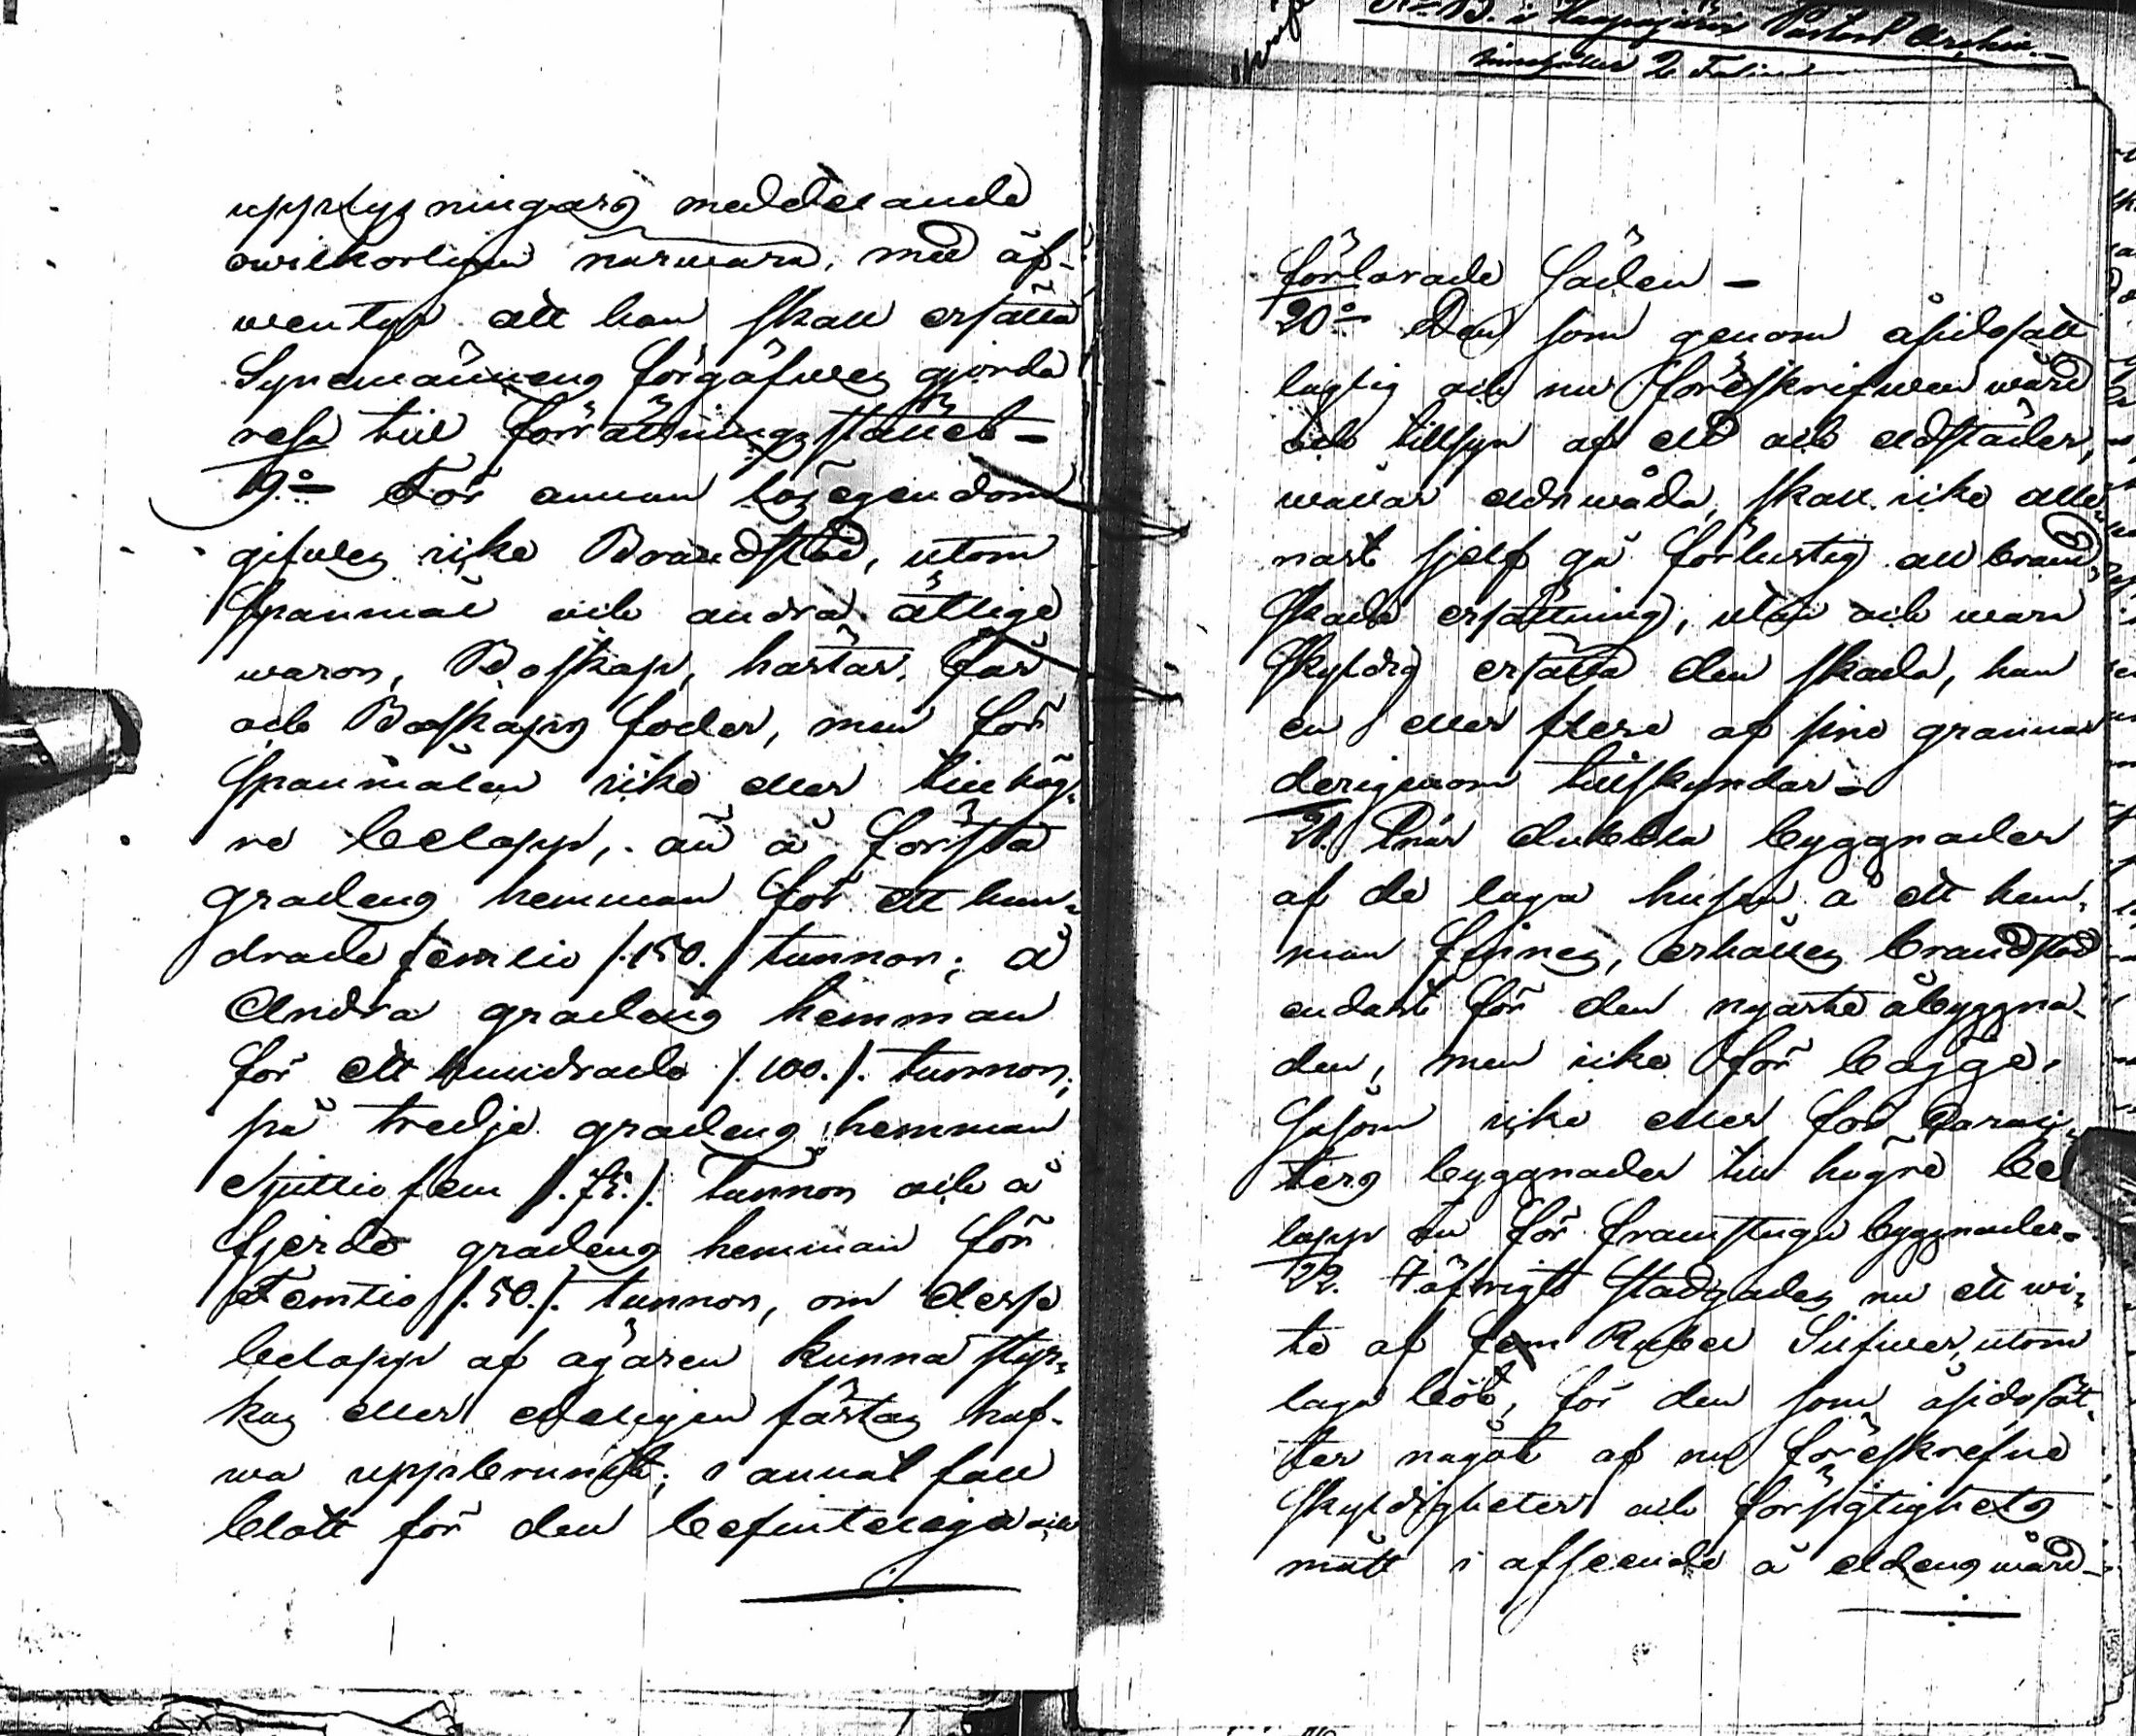 upplysningars meddelande
owilkorligen närwara, med äf-
wentyr att han skall ersätta
Synemännens förgäfwes gjorda
resa till förrättningsstället -
19:o För annan lösegendom
gifwes icke Brandstod, utom
Spanmål och andra ätlige
waror, Boskap, hästar, får
och Boskaps foder, men för
Spanmålen icke eller till hög-
re belopp, än å första
gradens hemman för ett hun-
drade femtio /:150.:/ tunnor; å
Andra gradens hemman
för ett hundrade /:100.:/ tunnor;
på tredje gradens hemman
Sjuttio fem /:75.:/ tunnor och å
fjerde gradens hemman för
Femtio /:50.:/ tunnor, om desse
belopp af ägaren kunna styr-
kas eller edeligen fästas haf-
wa uppbrunnit; i annat fall
blott för den befinteliga och
N:o B. i Pastors Archiv
innehåller 2
förlorade Säden -
20:o Den som genom åsidosatt
laglig och nu föreskrifwen wård
och tillsyn af eld och eldstäder,
wållar eldswåda, skall icke alle-
nast sjelf gå förlustig all brand-
skade ersättning, utan och wara
Skyldig ersätta den skada, han
en eller flere af sine grannar
derigenom tillskyndar -
21. Där dubbla byggnader
af de laga husen å ett hem-
man finnes, erhålles brandstod
endast för den nyaste åbyggna-
den, men icke för bägge,
Såsom icke eller för Carac-
ters byggnader till högre be-
lopp än för framstugu byggnader -
22. I öfrigt Stadgades nu ett wi-
te af fem Rubel Silfwer, utom
laga bot, för den som åsidosät-
ter något af nu föreskrefne
Skyldigheter och försigtighets
mått i afseende å eldens wård -